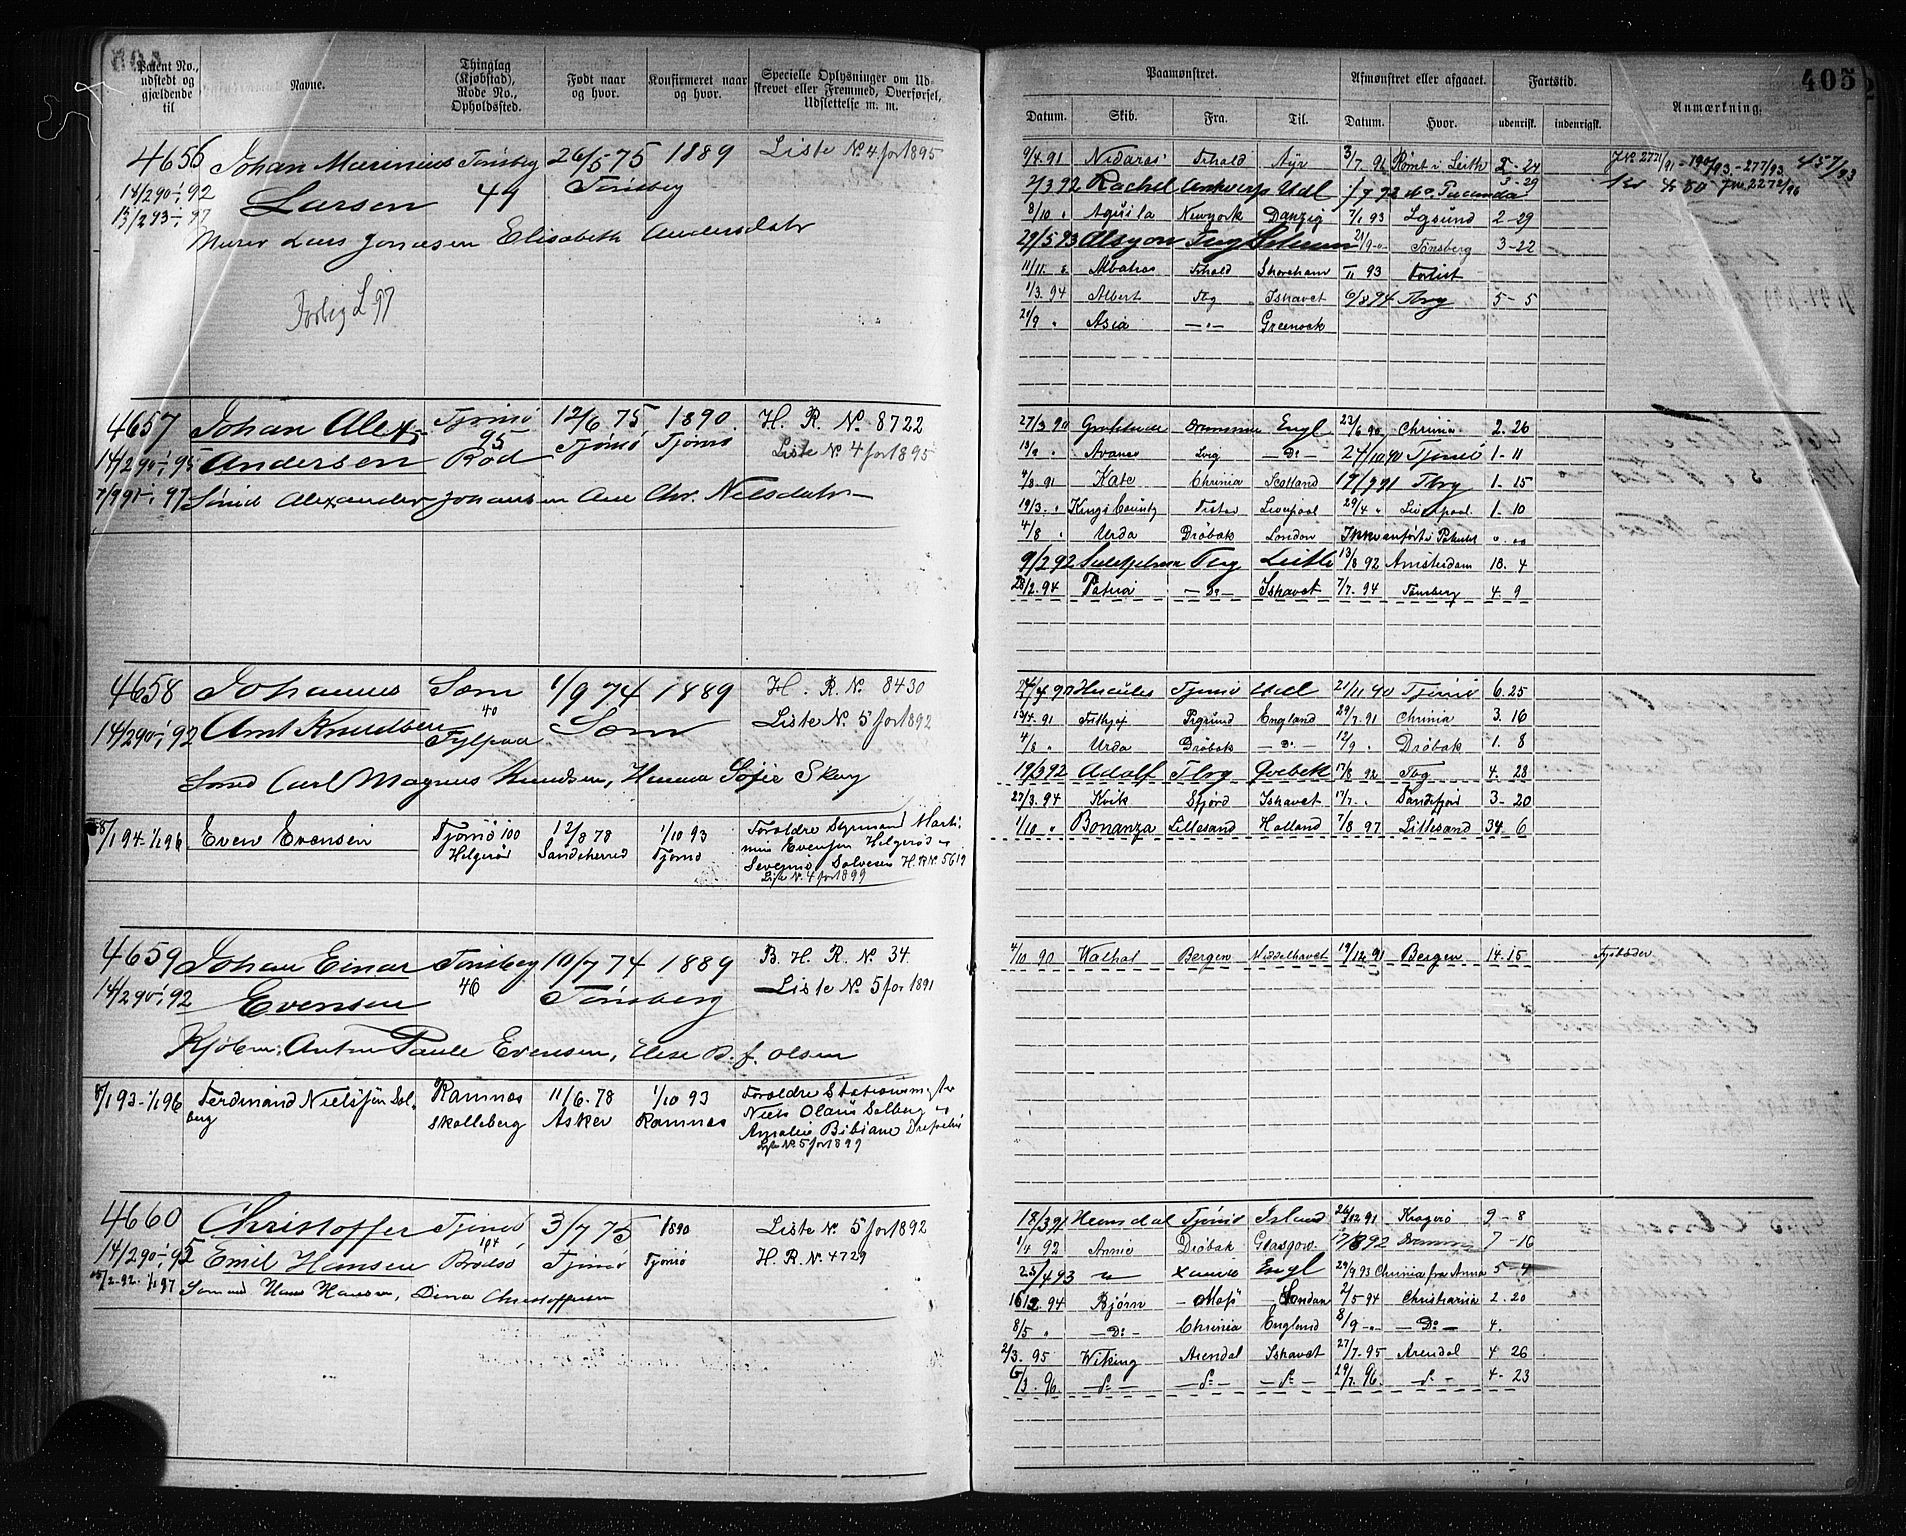 405
Patent No., udstedt og gjældende til
Navne.
Thinglag (Kjøbstad), Rode No., Opholdssted.
Født naar og hvor.
Konfirmeret naar og hvor.
Specielle Oplysninger om Udskrevet eller Fremmed, Overførsel, Udslettelse m. m.
Paamønstret.
Afmønstret eller afgaaet.
Fartstid.
Anmærkning.
Datum. Skib. Fra. Til. Datum. Hvor. udenrigsk. indenrigsk.
4656 Johan Marinius Tønsberg 26/5 75 1889 Liste No. 4 for 1895
14/2 90-1/1 92 Larsen 49 Tønsberg
13/2 93-1/1 97
Murer Lars Jonasen Elisabeth Andersdatr
Forbig L 97
9/4 91 Nidaros Frhald Ayr 3/7 91 Rømt i Leith 2-24
2/3 92 Rachel Antwerp Udl 1/7 92 3-29
8/10 " Newyork Danzig 7/1 93 2-29
29/5 93 Tbg 21/9 " Tønsberg 3-22
11/11 " Albatros Frhald Shoreham 93 Forlist
1/3 94 Albert Tbg Ishavet 6/8 94 Tbrg 5-5
21/9 " Asia -"- Greenock
4657 Johan Alex Tjømø 12/6 75 1890. H. R. No 8722
14/2 90-1/1 95 Andersen 95 Rød Tjømø Tjømø Liste No 4 for 1895
7/9 91-1/1 97 Smed Alexander Johansen Ane Chr. Nielsdatr
27/3 90 Gratitude Drammen Engl 22/6 90 Chrinia 2. 26
13/9 " Avance Lvig -Do- 24/10 90 Tjømø 1-11
4/8 91 Kate Chrinia Scotland 19/9 91 Tbrg 1-15
19/3 " Kings County Tister Liverpool 29/4 " Liverpool 1. 10
4/8 " Urda Drøbak London Ikke anført i Patentet " "
9/2 92 Tbrg Leith 13/8 92 Amsterdam 10. 4
28/2. 94 Patria -Do- Ishavet 7/7. 94 Tønsberg 4. 9
4658 Johannes Sem 1/9 74 1889 H. R. No. 8430
14/2 90-1/1 92 Arnt Knudsen 40 Sem Liste No. 5 for 1892
Smed Carl Magnus Knudsen, Hanna Sofie Skau
24/4 90 Hercules Tjømø Udl 21/11 90 Tjømø 6. 25
13/4. 91 Prgrund England 29/7. 91 Chrinia 3. 16
4/8 " Urda Drøbak -Do- 12/9 " Drøbak 1. 8
19/3 92 Adolf Tbrg Qvebek 17/8 92 Tbg 4. 28
27/3. 94 Kvik Sfjord Ishavet 17/7. " Sandefjord 3-20
1/10 " Bonanza Lillesand Holland 7/8 97 Lillesand 34. 6
8/1 94-1/1 96 Even Evensen Tjømø 100 Helgerød 12/8 78 Sandeherred 1/10 93 Tjømø Foreldre Styrmand Martinius Evensen Helgerød og Severine Solvesen H. R. No. 5619
Liste No. 4 for 1899
4659 Johan Einar Tønsberg 10/7 74 1889 B. H. R. No 34.
14/2 90-1/1 92 Evensen 46 Tønsberg Liste No 5 for 1891
Kjøbm. Anton Paule Evensen, Elese B. f. Olsen
4/10 90 Walhal Bergen Middelhavet 19/12 91 Bergen 14. 15 Fyrbøder
8/1 93-1/1 96 Ferdinand Nielsen Solberg Ramnes Skalleberg 11/6. 78 Asker 1/10 93 Ramnes Foreldre Stationsmester Niels Olaus Solberg og Amalie Bibiane
Liste No. 5 for 1899
4660 Christoffer Tjømø, 3/7 75 1890 Liste No. 5 for 1892
14/2 90-1/1 95 Emil Hansen 104 Brødsø Tjømø Tjømø H. R. No. 4729
Sømand Hans Hansen, Dina Christoffersen
18/3 91 Hemsdal Tjømø Island 26/12 91 Kragerø 9-8
1/4 92 Annie Drøbak Glasgow 17/8 92 Drammen 7-16
25/4 93 " Engl 29/9 93 Chrinia fra Anna 5-4
16/2. 94 Bjørn -Moss -London 2/5 94 Christiania 2. 20
8/5 " -Do- Chrinia England 8/9 -"- -Do- 4.
2/3. 95 Wiking Arendal Ishavet 27/7. 95 Arendal 4 26
6/3. 96. -do- -do- -do- 29/7. 96. -do- 4-23